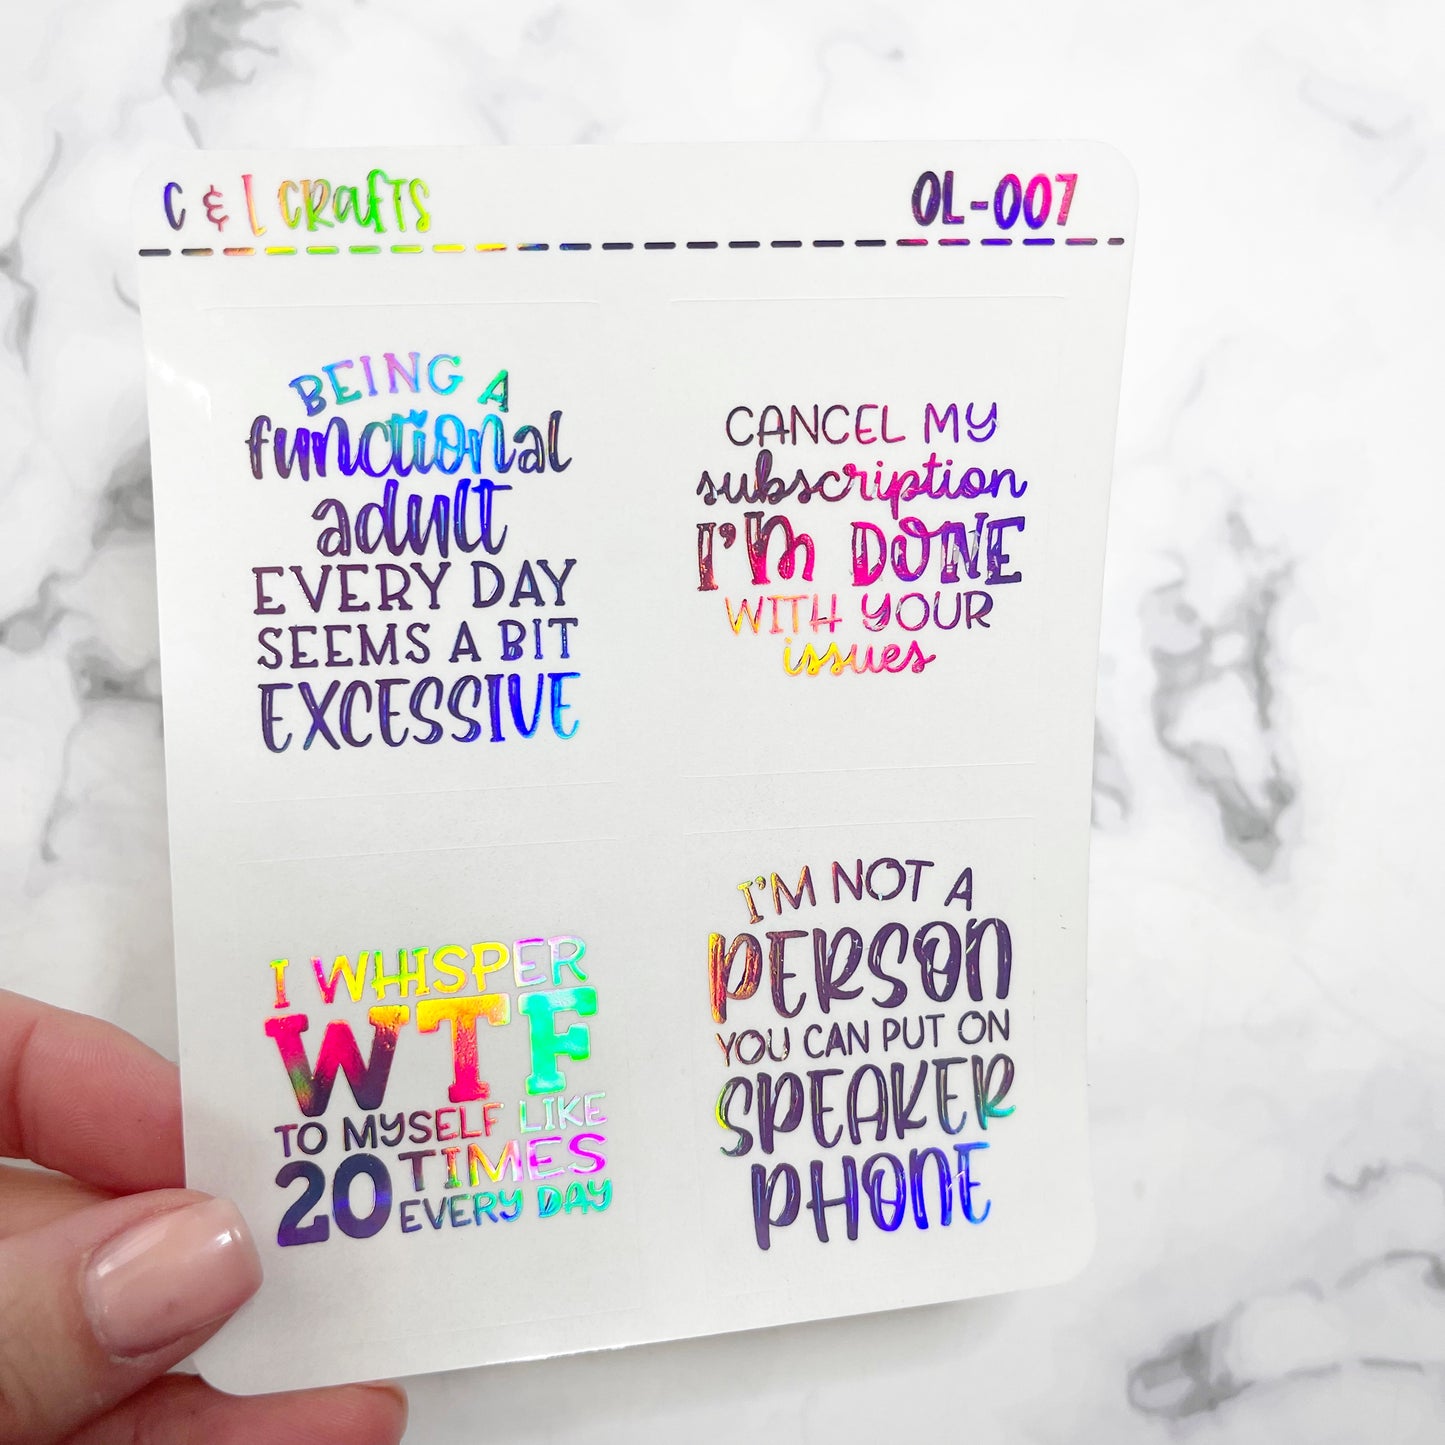 C & L CRAFTS
OL-007
BEING A
functional
adult
EVERY DAY
SEEMS A BIT
EXCESSIVE
CANCEL MY
subscription
I'M DONE
WITH YOUR
issues
I WHISPER
WTF
TO MYSELF LIKE
20 TIMES
EVERY DAY
I'M NOT A
PERSON
YOU CAN PUT ON
SPEAKER
PHONE